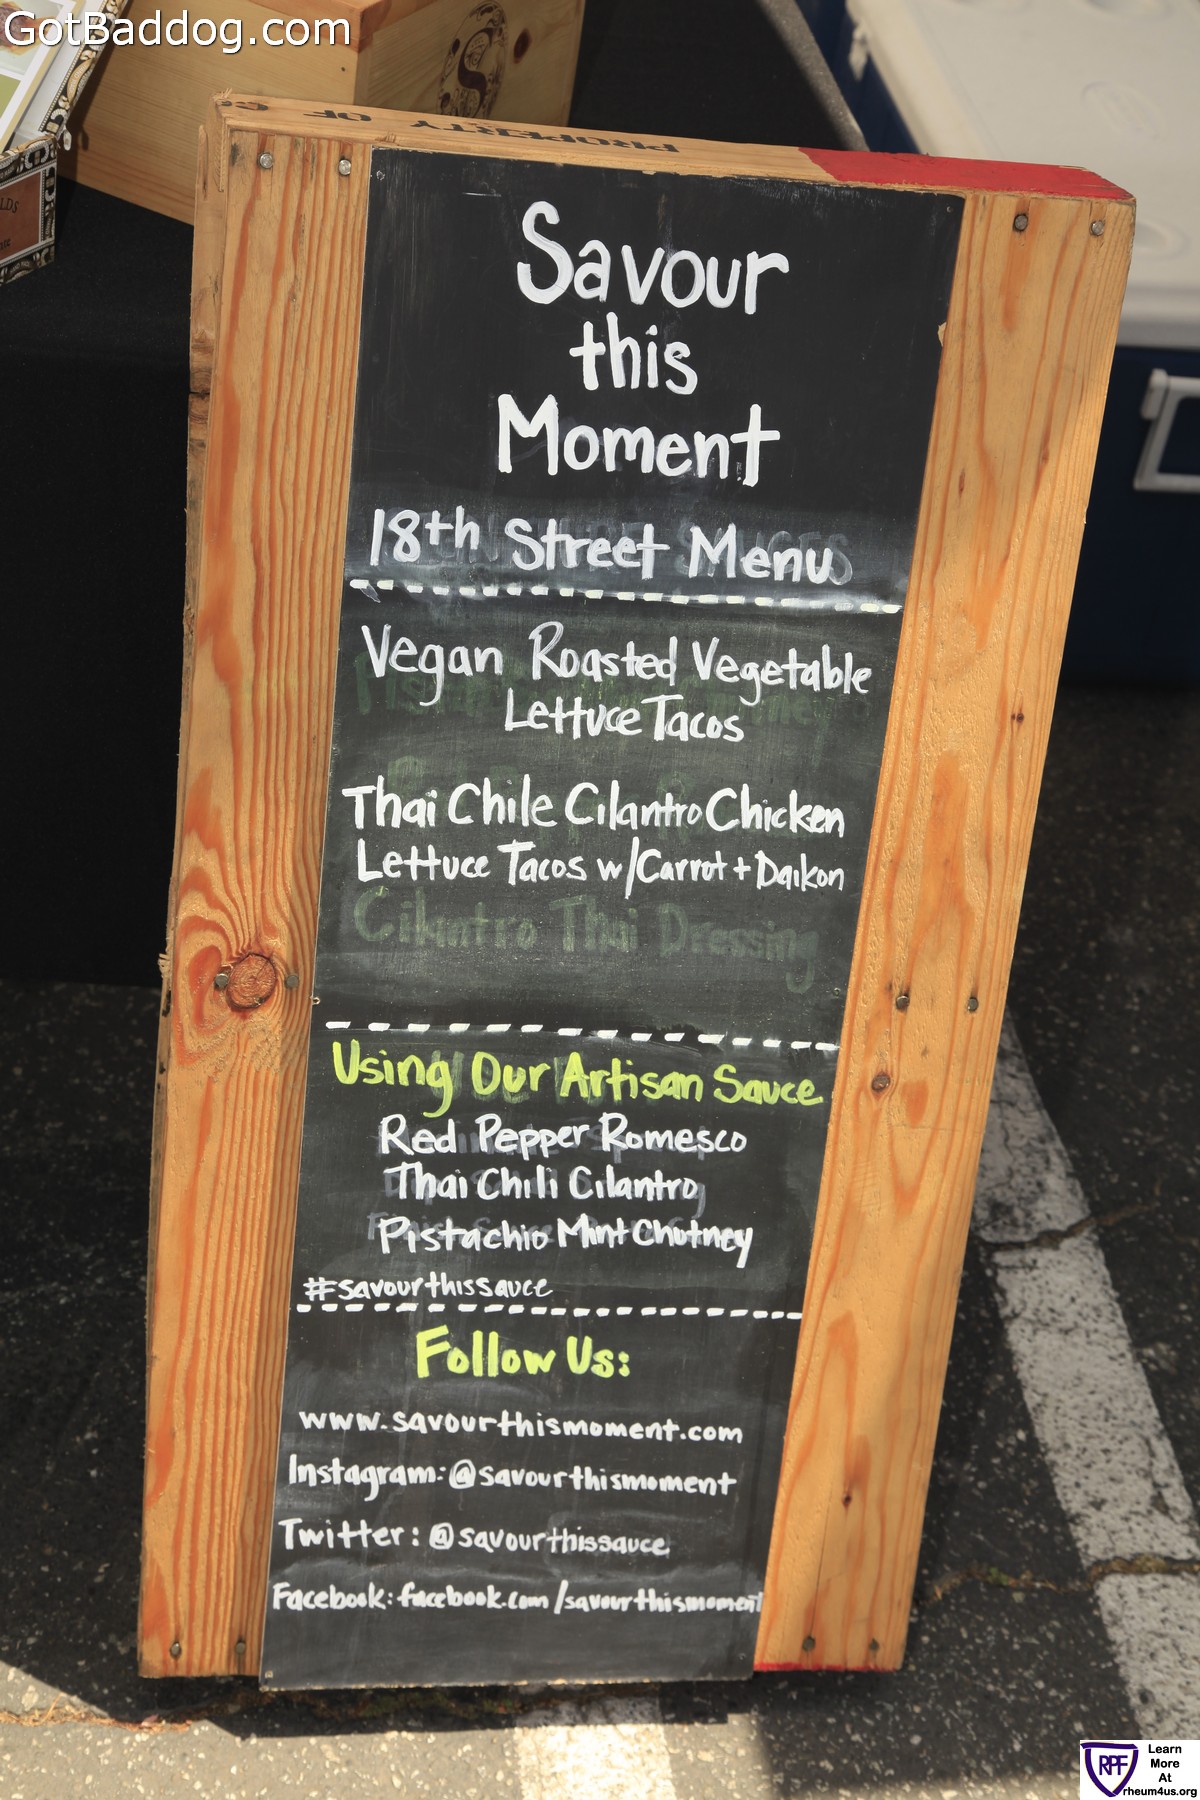 GotBaddog.com
PROPERTY OF
Savour
this
Moment
18th Street Menu
Vegan Roasted Vegetable
Lettuce Tacos
Thai Chile Cilantro Chicken
Lettuce Tacos w/Carrot + Daikon
Cilantro Thai Dressing
Using Our Artisan Sauce
Red Pepper Romesco
Thai Chili Cilantro
Pistachio Mint Chutney
#savourthissauce
Follow Us:
www.savourthismoment.com
Instagram: @savourthismoment
Twitter: @savourthissauce
Facebook: facebook.com/savourthismoment
RPF
Learn
More
At
rheum4us.org